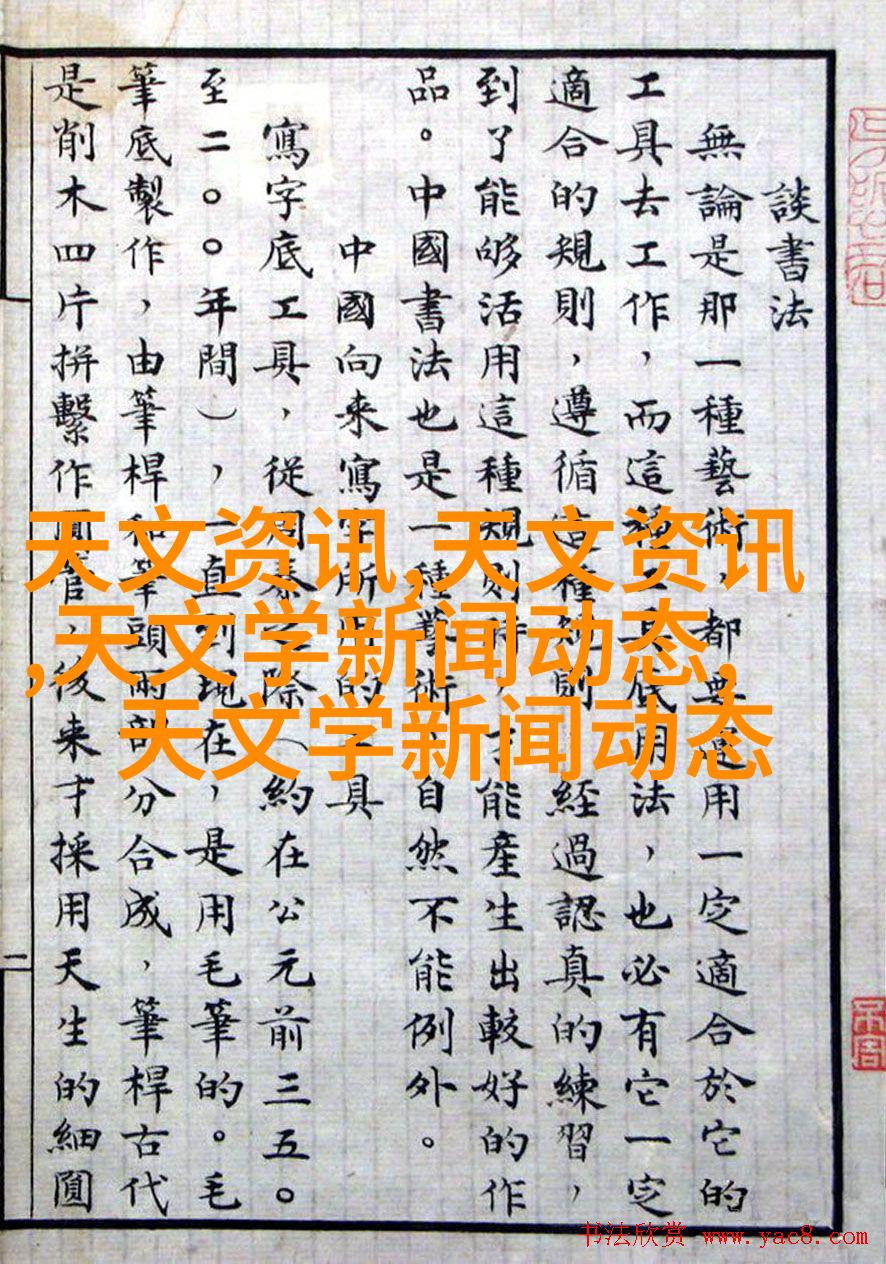 談書法
無論是那一種藝術，都要運用一定適合於它的
工具去工作，而這種工具底用法，也必有它一定
適合的規則，遵循這種規則，經過認真的練習，
到了能够活用這種規則時，才能產生出較好的作
品。中國書法也是一種藝術，自然不能例外。
中國向來寫字所用的工具
寫字底工具，從周秦之際（約在公元前三五〇
至二〇〇年間），一直到現在，是用毛筆的。毛
筆底製作，由筆桿和筆頭兩部分合成，筆桿古代
是削木四片拼繫作圓管，後來才採用天生的細圓
二
天文资讯,天文资讯
,天文学新闻动态,
天文学新闻动态
书法欣赏 www.yac8.com